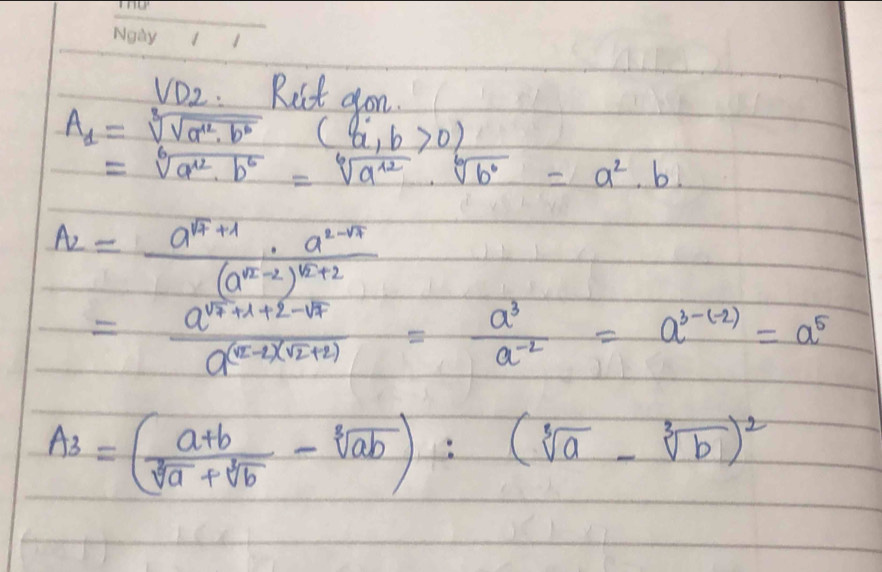 Thứ
Ngày / /
VD2: Rút gọn.
A₁ = ∛√(a¹². b⁶) (a, b > 0)
= ⁶√(a¹². b⁶) = ⁶√(a¹²) . ⁶√(b⁶) = a² . b.
A₂ = (a^(√7+1) . a^(2-√7)) / (a^(√2-2))^(√2+2)
= a^(√7+1+2-√7) / a^((√2-2)(√2+2)) = a³ / a⁻² = a^(3-(-2)) = a⁵
A₃ = ((a+b)/(∛a + ∛b) - ∛(ab)) : (∛a - ∛b)²